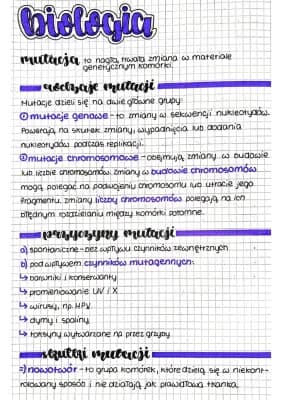 biologia
mutacja to nagła, trwała zmiana w materiale
genetycznym komórki.
rodzaje mutacji
Mutacje dzieli się na dwie główne grupy:
① mutacje genowe - to zmiany w sekwencji nukleotydów.
Powstają na skutek zmiany, wypadnięcia lub dodania
nukleotydów podczas replikacji.
② mutacje chromosomowe - obejmują zmiany w budowie
lub liczbie chromosomów. zmiany w budowie chromosomów
mogą polegać na podwojeniu chromosomu lub utracie jego
fragmentu. zmiany liczby chromosomów polegają na ich
błędnym rozdzieleniu między komórki potomne.
przyczyny mutacji
a) spontaniczne - bez wpływu czynników zewnętrznych
b) pod wpływem czynników mutagennych:
↳ barwniki i konserwanty
↳ promieniowanie UV i X
↳ wirusy, np. HPV
↳ dymy i spaliny
↳ toksyny wytwarzane na przez grzyby
skutki mutacji
⇒ nowotwór - to grupa komórek, które dzielą się w niekont-
rolowany sposób i nie działają jak prawidłowa tkanka.